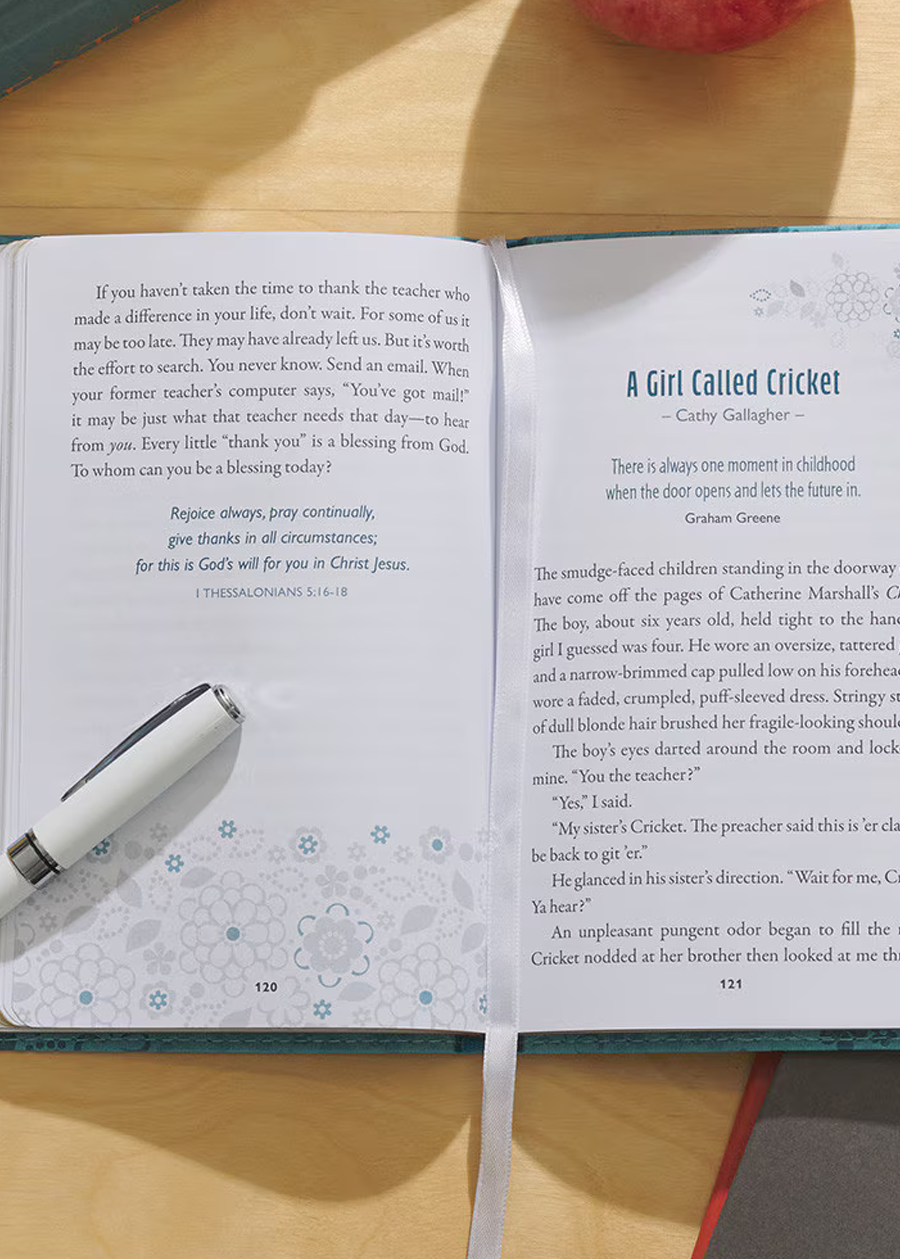 If you haven't taken the time to thank the teacher who
made a difference in your life, don't wait. For some of us it
may be too late. They may have already left us. But it's worth
the effort to search. You never know. Send an email. When
your former teacher's computer says, “You've got mail!”
it may be just what that teacher needs that day—to hear
from you. Every little “thank you” is a blessing from God.
To whom can you be a blessing today?
Rejoice always, pray continually,
give thanks in all circumstances;
for this is God's will for you in Christ Jesus.
1 THESSALONIANS 5:16-18
120
A Girl Called Cricket
– Cathy Gallagher –
There is always one moment in childhood
when the door opens and lets the future in.
Graham Greene
The smudge-faced children standing in the doorway
have come off the pages of Catherine Marshall's
The boy, about six years old, held tight to the
girl I guessed was four. He wore an oversize, tattered
and a narrow-brimmed cap pulled low on his
wore a faded, crumpled, puff-sleeved dress. Stringy
of dull blonde hair brushed her fragile-looking
The boy's eyes darted around the room and
mine. “You the teacher?”
“Yes,” I said.
“My sister's Cricket. The preacher said this is 'er
be back to git 'er.”
He glanced in his sister's direction. “Wait for me,
Ya hear?”
An unpleasant pungent odor began to fill the
Cricket nodded at her brother then looked at me
121